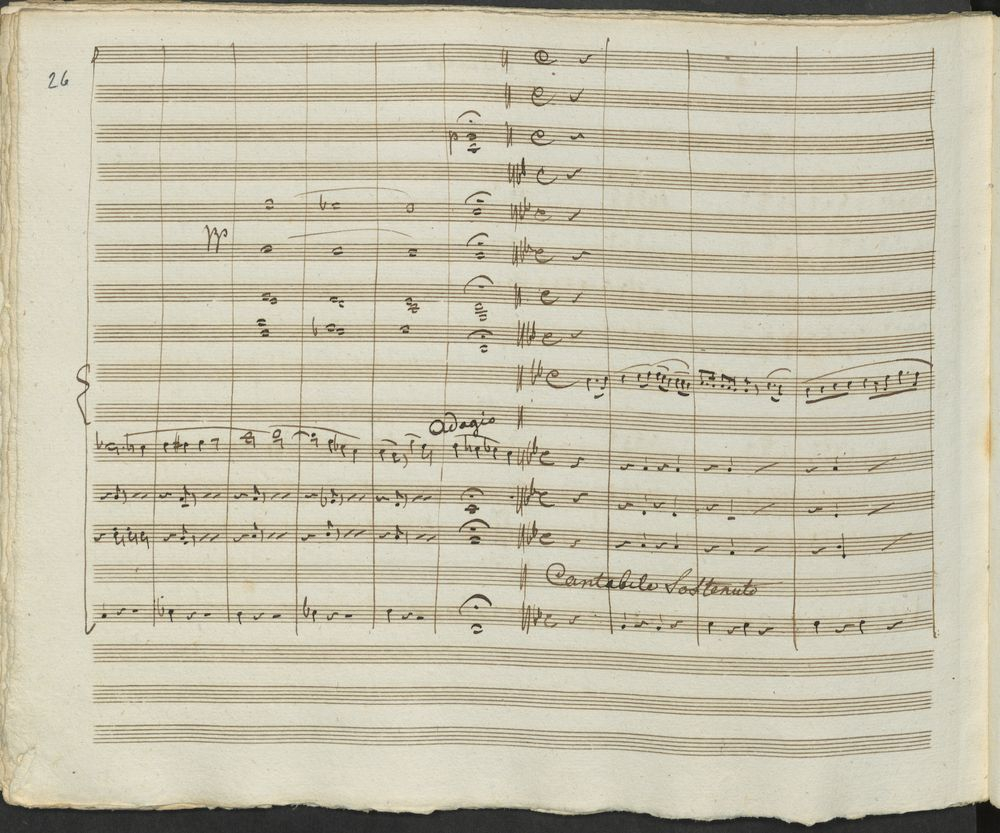 26
p
pp
Adagio
Cantabile Sostenuto